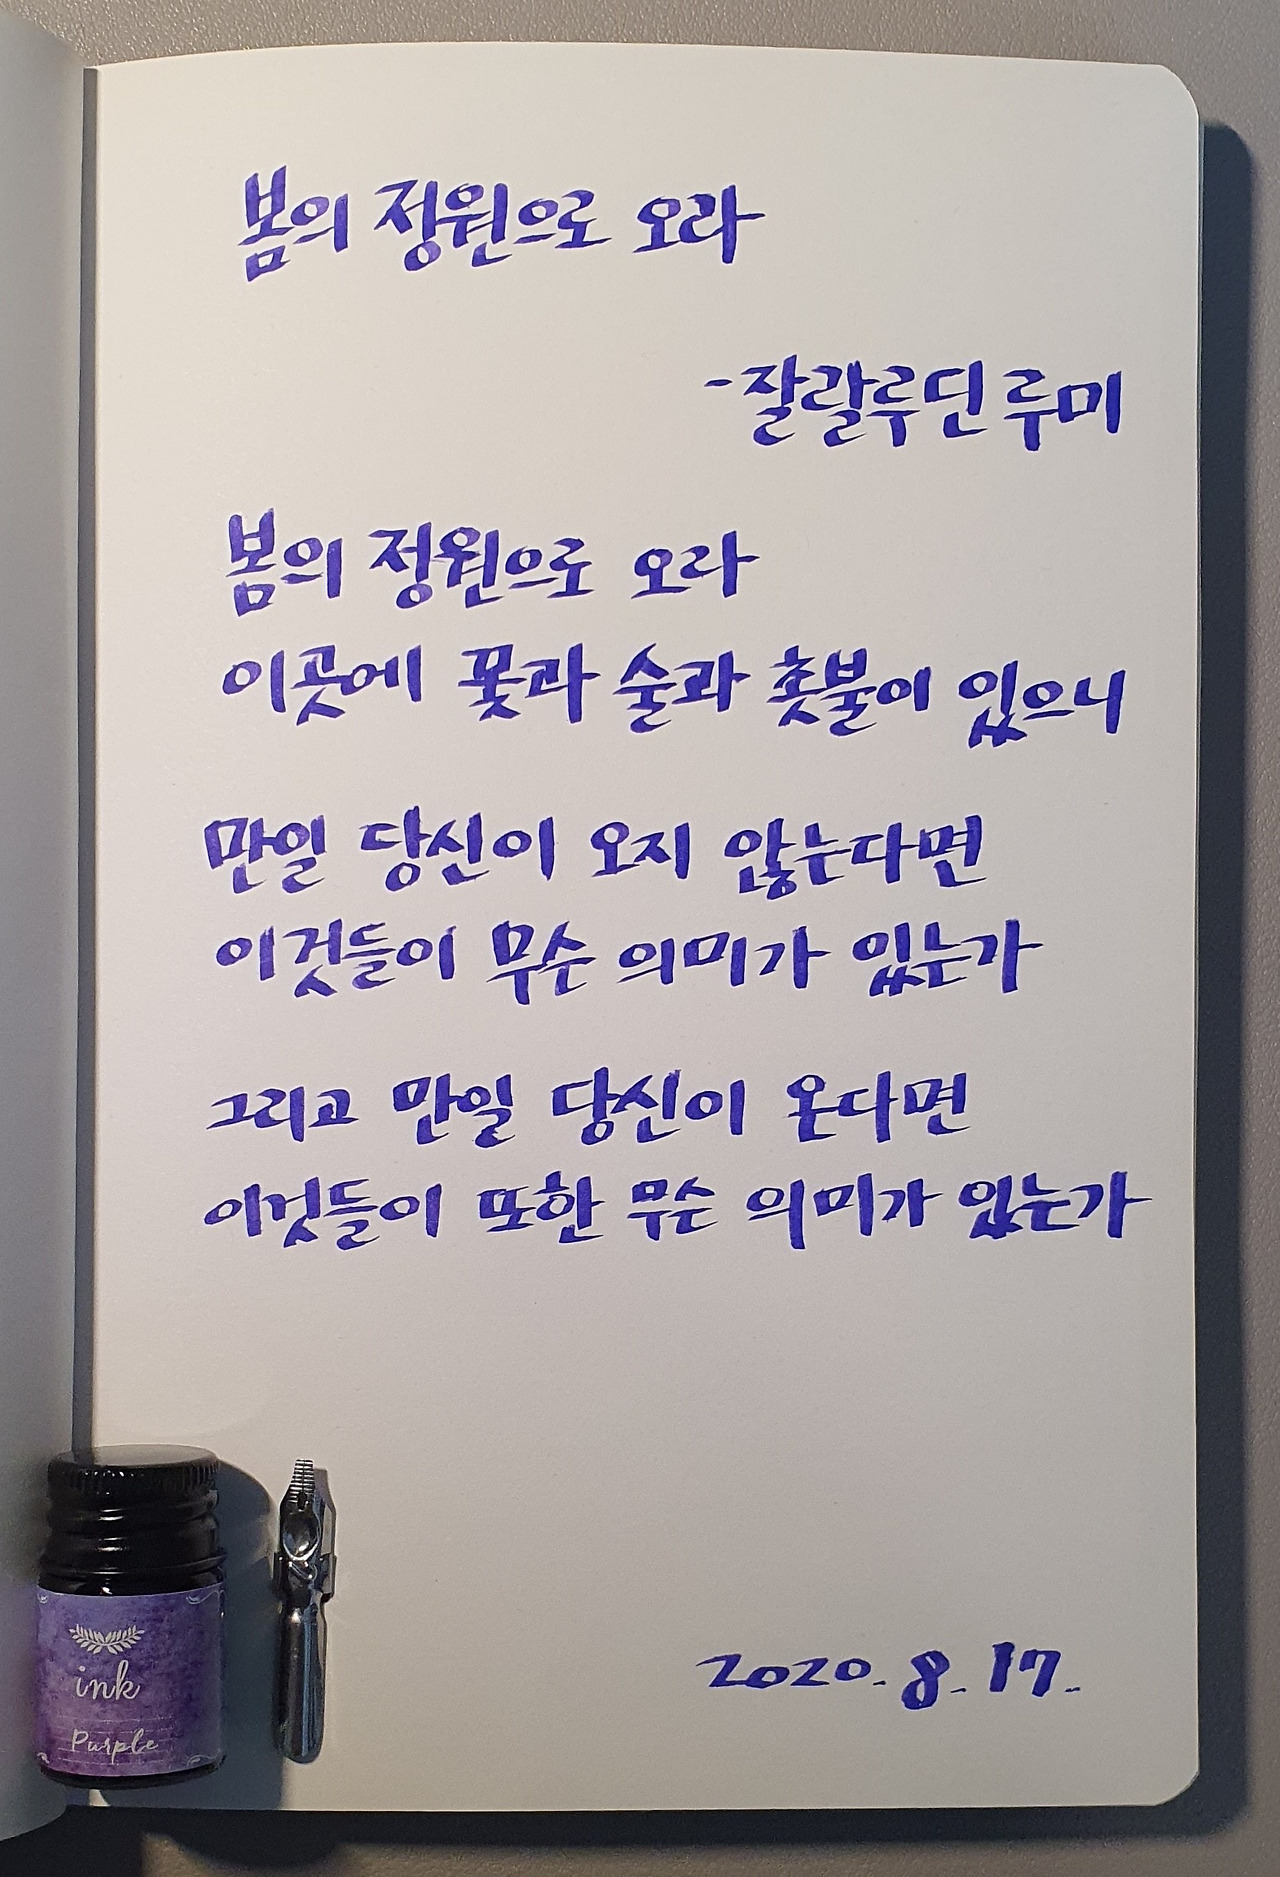 봄의 정원으로 오라
-잘랄루딘 루미
봄의 정원으로 오라
이곳에 꽃과 술과 촛불이 있으니
만일 당신이 오지 않는다면
이것들이 무슨 의미가 있는가
그리고 만일 당신이 온다면
이것들이 또한 무슨 의미가 있는가
ink
Purple
2020. 8. 17.